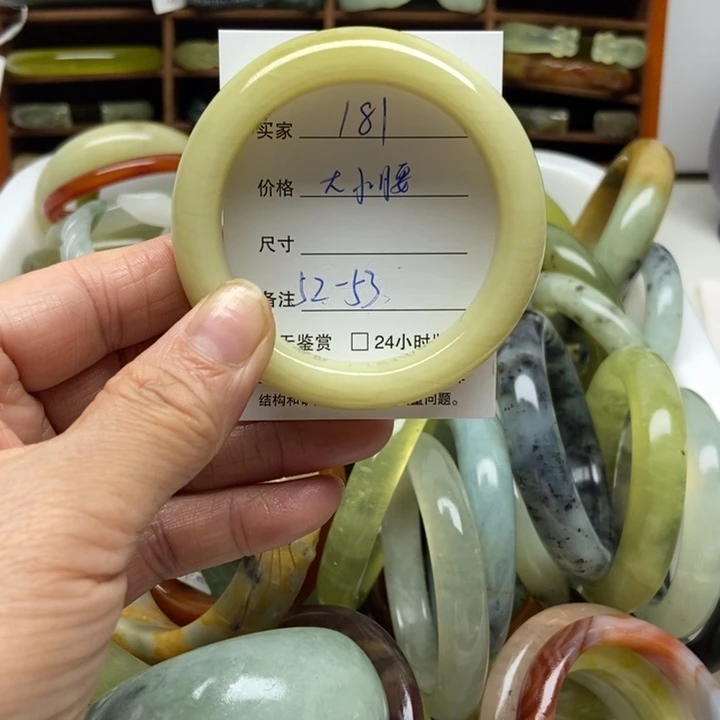 买家 181
价格 大小腰
尺寸
备注 52-53
鉴赏 □ 24小时
结构和 问题。